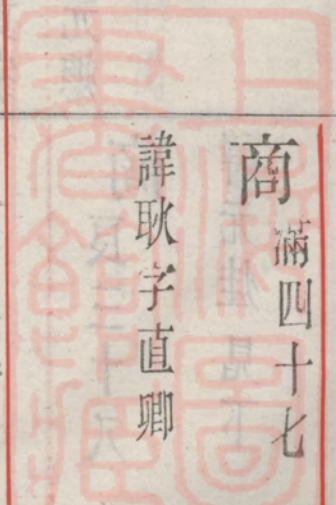 商滿四十七
諱耿字直卿